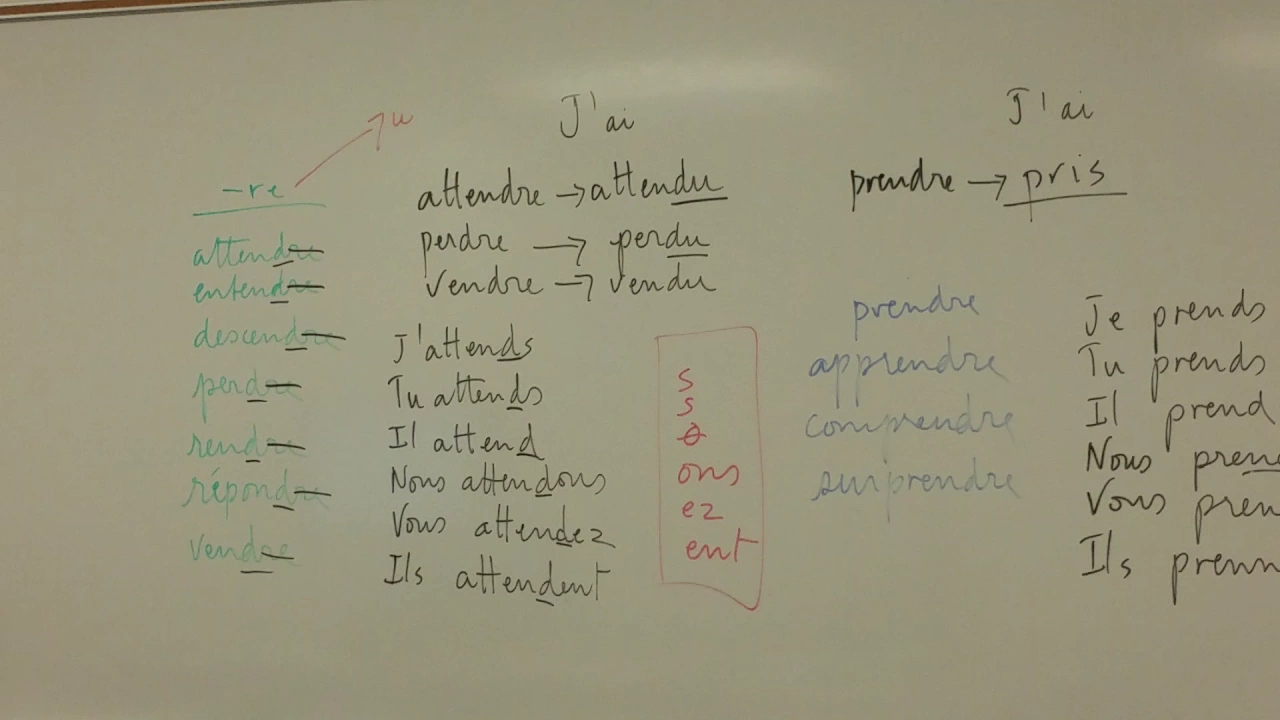 -re
u
attendre
entendre
descendre
perdre
rendre
répondre
vendre
J'ai
attendre → attendu
perdre → perdu
vendre → vendu
J'attends
Tu attends
Il attend
Nous attendons
Vous attendez
Ils attendent
s
s
ø
ons
ez
ent
J'ai
prendre → pris
prendre
apprendre
comprendre
surprendre
Je prends
Tu prends
Il prend
Nous pren
Vous pren
Ils prenn